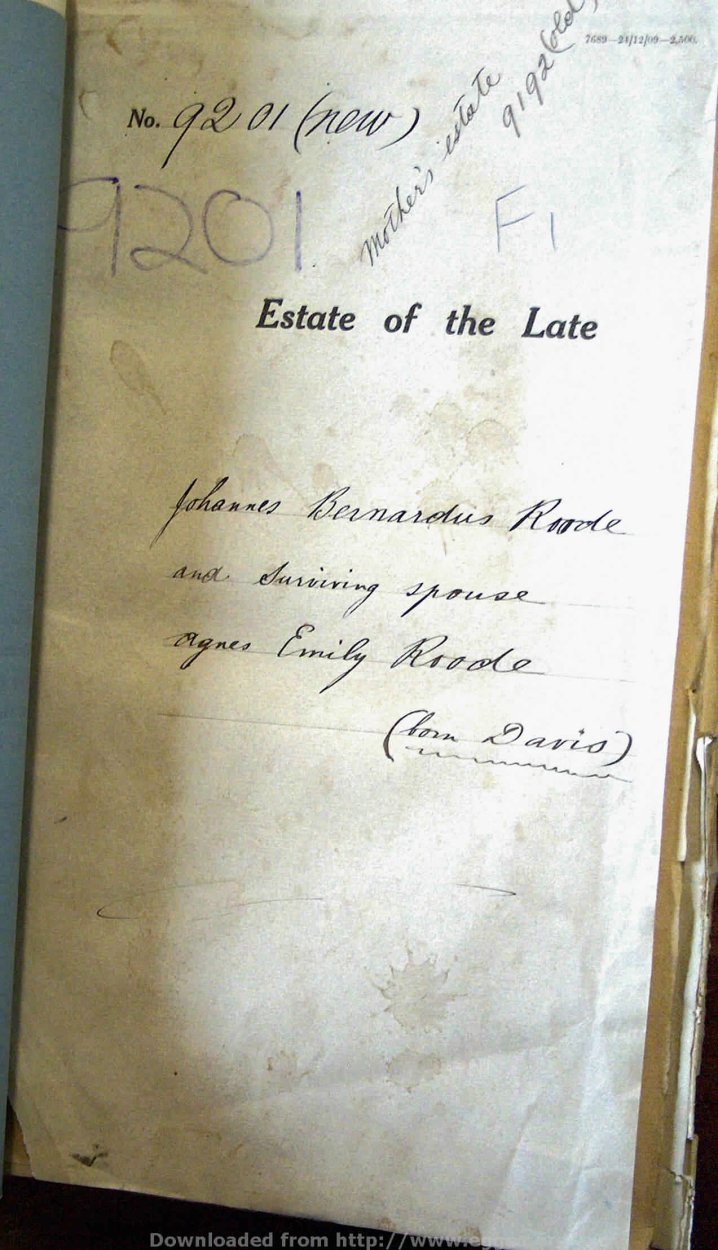 7689—21/12/09—2,500.
No. 9201 (new)
Mother's estate 9192 (old)
9201
F1
Estate of the Late
Johannes Bernardus Roode
and Surviving spouse
Agnes Emily Roode
(born Davis)
Downloaded from http://www.eg